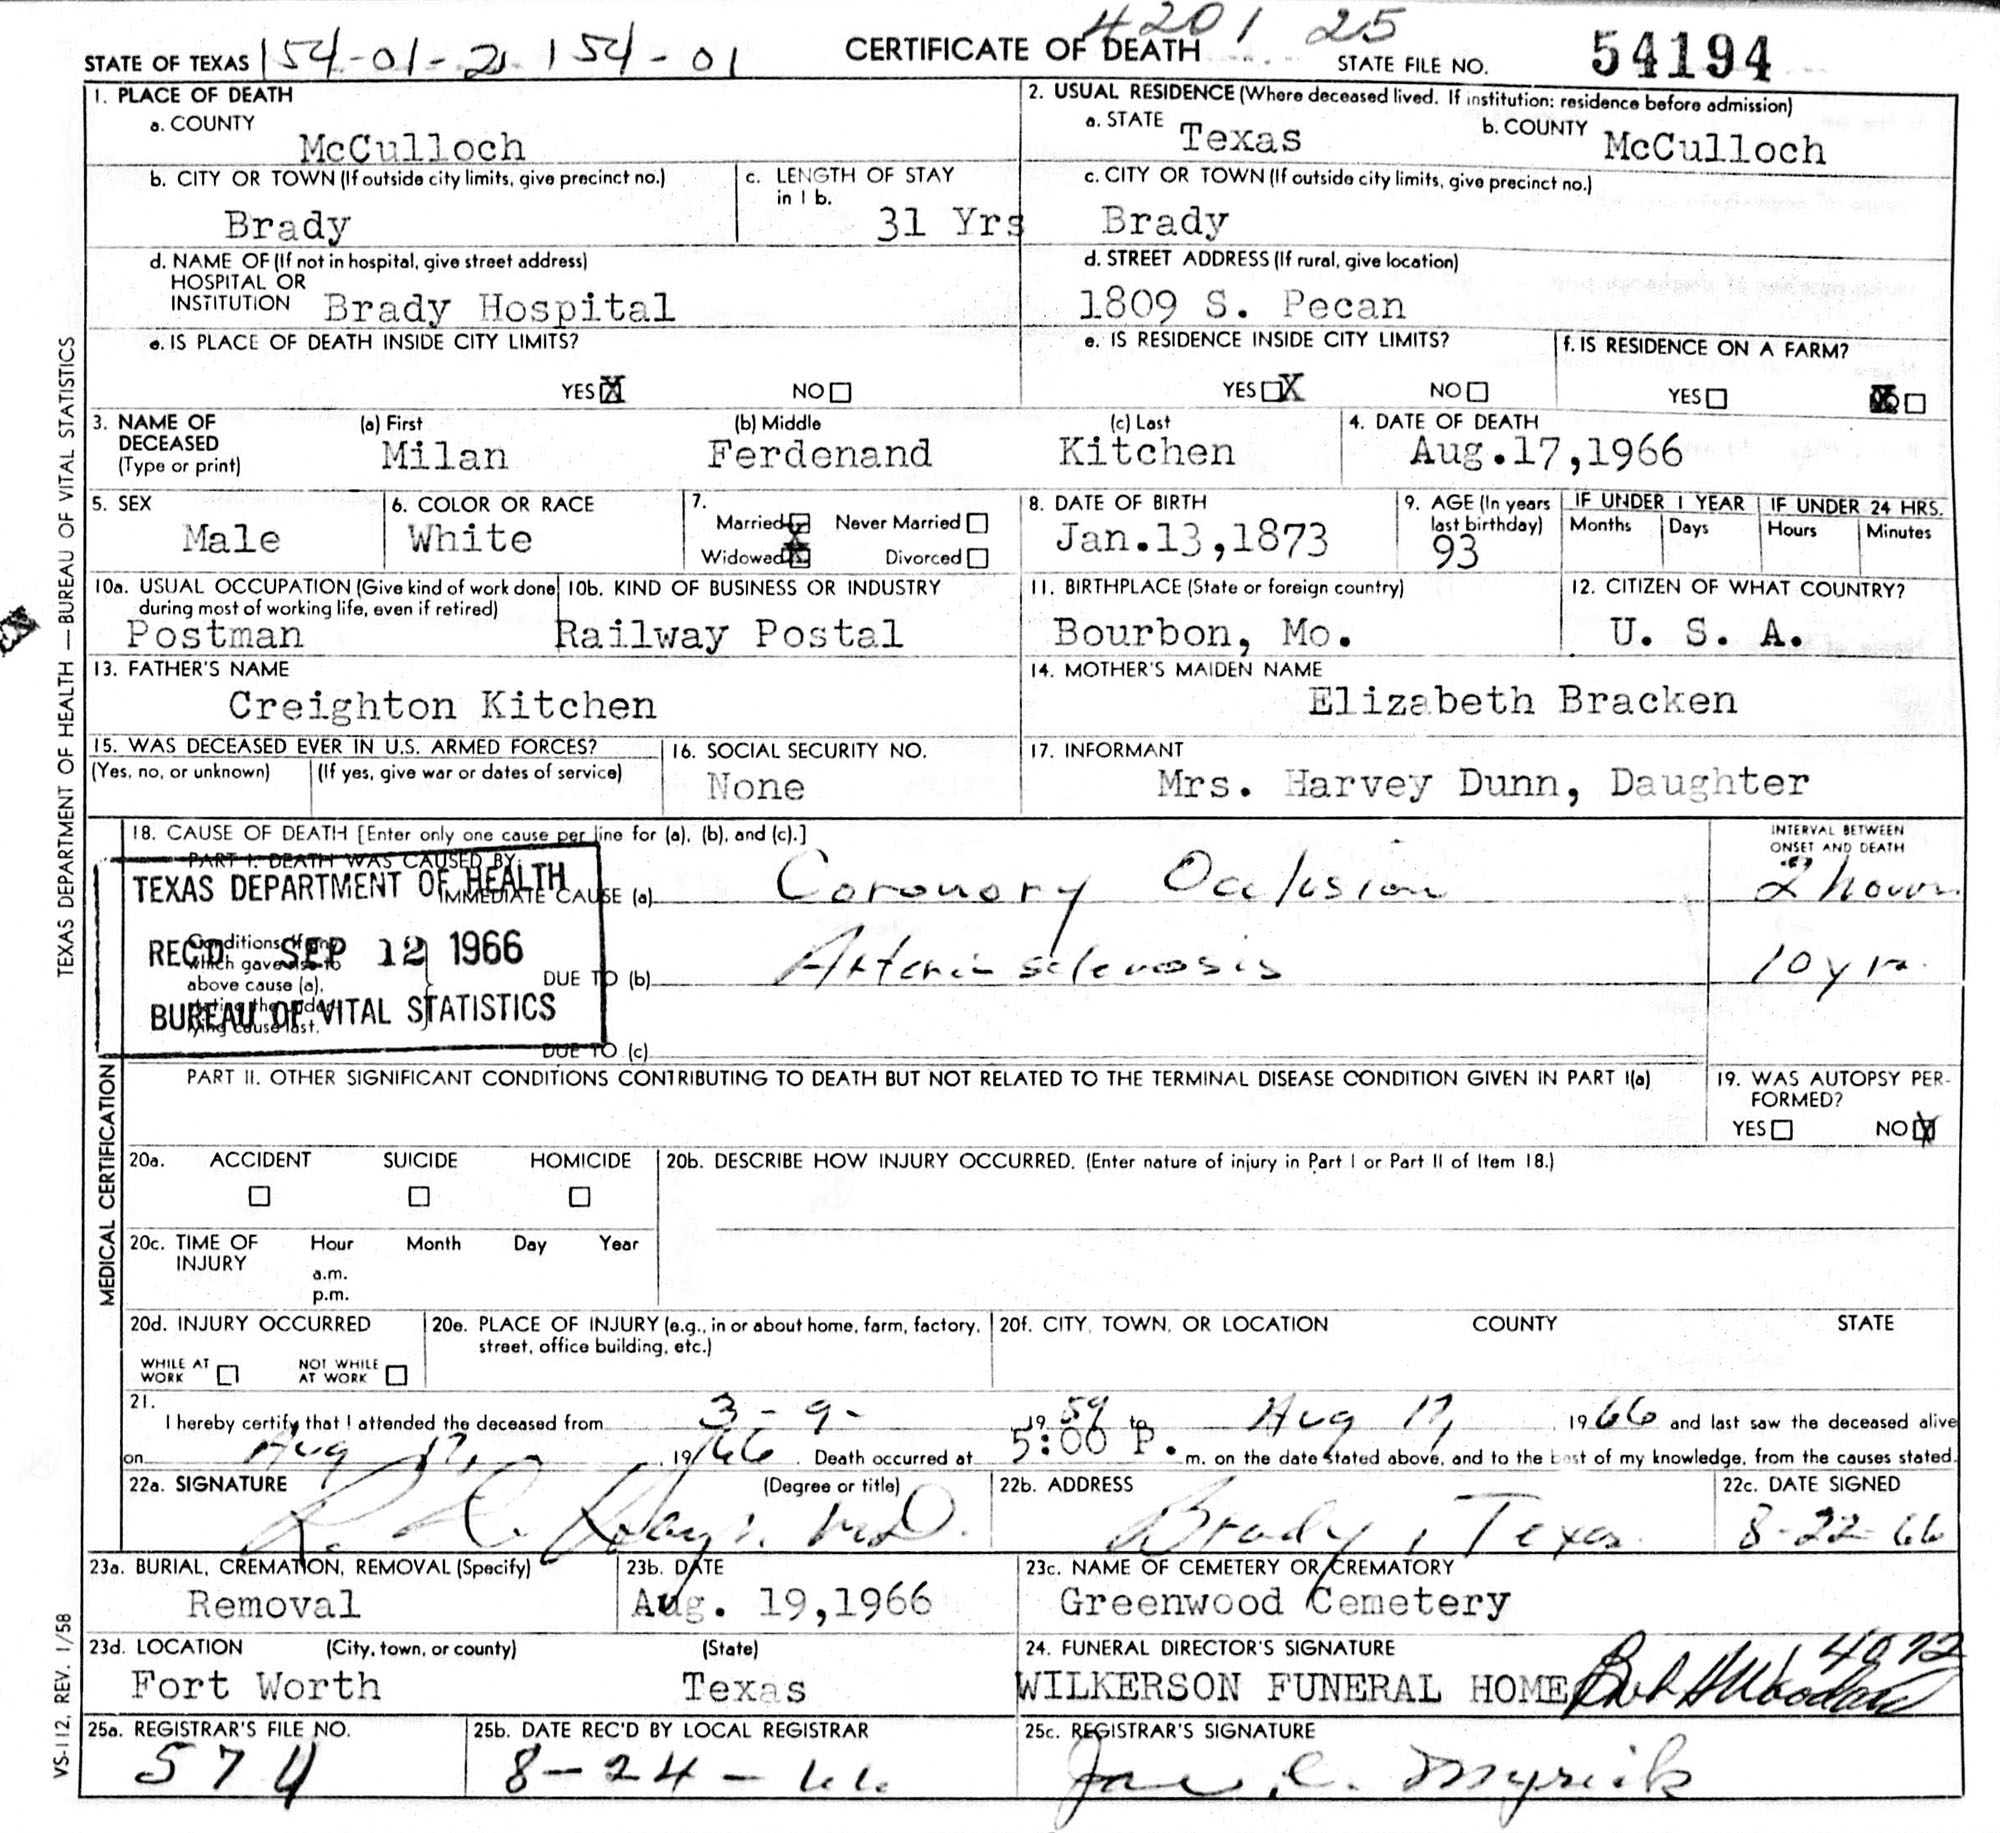 4201 25
STATE OF TEXAS 154-01-21 154-01 CERTIFICATE OF DEATH STATE FILE NO. 54194
1. PLACE OF DEATH
a. COUNTY
McCulloch
2. USUAL RESIDENCE (Where deceased lived. If institution: residence before admission)
a. STATE Texas b. COUNTY McCulloch
b. CITY OR TOWN (If outside city limits, give precinct no.)
Brady
c. LENGTH OF STAY
in 1 b.
31 Yrs
c. CITY OR TOWN (If outside city limits, give precinct no.)
Brady
d. NAME OF (If not in hospital, give street address)
HOSPITAL OR
INSTITUTION Brady Hospital
d. STREET ADDRESS (If rural, give location)
1809 S. Pecan
e. IS PLACE OF DEATH INSIDE CITY LIMITS?
YES X NO
e. IS RESIDENCE INSIDE CITY LIMITS?
YES X NO
f. IS RESIDENCE ON A FARM?
YES NO
3. NAME OF
DECEASED
(Type or print)
(a) First
Milan
(b) Middle
Ferdenand
(c) Last
Kitchen
4. DATE OF DEATH
Aug.17,1966
5. SEX
Male
6. COLOR OR RACE
White
7.
Married Never Married
Widowed X Divorced
8. DATE OF BIRTH
Jan.13,1873
9. AGE (In years
last birthday)
93
IF UNDER 1 YEAR
Months Days
IF UNDER 24 HRS.
Hours Minutes
10a. USUAL OCCUPATION (Give kind of work done
during most of working life, even if retired)
Postman
10b. KIND OF BUSINESS OR INDUSTRY
Railway Postal
11. BIRTHPLACE (State or foreign country)
Bourbon, Mo.
12. CITIZEN OF WHAT COUNTRY?
U. S. A.
13. FATHER'S NAME
Creighton Kitchen
14. MOTHER'S MAIDEN NAME
Elizabeth Bracken
15. WAS DECEASED EVER IN U.S. ARMED FORCES?
(Yes, no, or unknown) (If yes, give war or dates of service)
16. SOCIAL SECURITY NO.
None
17. INFORMANT
Mrs. Harvey Dunn, Daughter
18. CAUSE OF DEATH [Enter only one cause per line for (a), (b), and (c).]
INTERVAL BETWEEN
ONSET AND DEATH
PART I. DEATH WAS CAUSED BY:
IMMEDIATE CAUSE (a) Coronory Occlusion 2 hours
Conditions, if any,
which gave rise to
above cause (a),
stating the under-
lying cause last.
DUE TO (b) Arteriosclerosis 10 yrs.
DUE TO (c)
TEXAS DEPARTMENT OF HEALTH
REC'D SEP 12 1966
BUREAU OF VITAL STATISTICS
PART II. OTHER SIGNIFICANT CONDITIONS CONTRIBUTING TO DEATH BUT NOT RELATED TO THE TERMINAL DISEASE CONDITION GIVEN IN PART I(a)
19. WAS AUTOPSY PER-
FORMED?
YES NO X
20a. ACCIDENT SUICIDE HOMICIDE
20b. DESCRIBE HOW INJURY OCCURRED. (Enter nature of injury in Part I or Part II of Item 18.)
20c. TIME OF
INJURY
Hour Month Day Year
a.m.
p.m.
20d. INJURY OCCURRED
WHILE AT
WORK
NOT WHILE
AT WORK
20e. PLACE OF INJURY (e.g., in or about home, farm, factory,
street, office building, etc.)
20f. CITY, TOWN, OR LOCATION COUNTY STATE
21.
I hereby certify that I attended the deceased from 3-9- 19 59 to Aug 17, 19 66 and last saw the deceased alive
on Aug 17, 19 66. Death occurred at 5:00 P. m. on the date stated above, and to the best of my knowledge, from the causes stated.
22a. SIGNATURE (Degree or title)
M.D.
22b. ADDRESS
Brady, Texas
22c. DATE SIGNED
8-22-66
23a. BURIAL, CREMATION, REMOVAL (Specify)
Removal
23b. DATE
Aug. 19,1966
23c. NAME OF CEMETERY OR CREMATORY
Greenwood Cemetery
23d. LOCATION (City, town, or county) (State)
Fort Worth Texas
24. FUNERAL DIRECTOR'S SIGNATURE
4072
WILKERSON FUNERAL HOME
25a. REGISTRAR'S FILE NO.
574
25b. DATE REC'D BY LOCAL REGISTRAR
8-24-66
25c. REGISTRAR'S SIGNATURE
Myrick
TEXAS DEPARTMENT OF HEALTH — BUREAU OF VITAL STATISTICS
MEDICAL CERTIFICATION
VS-112, REV. 1/58